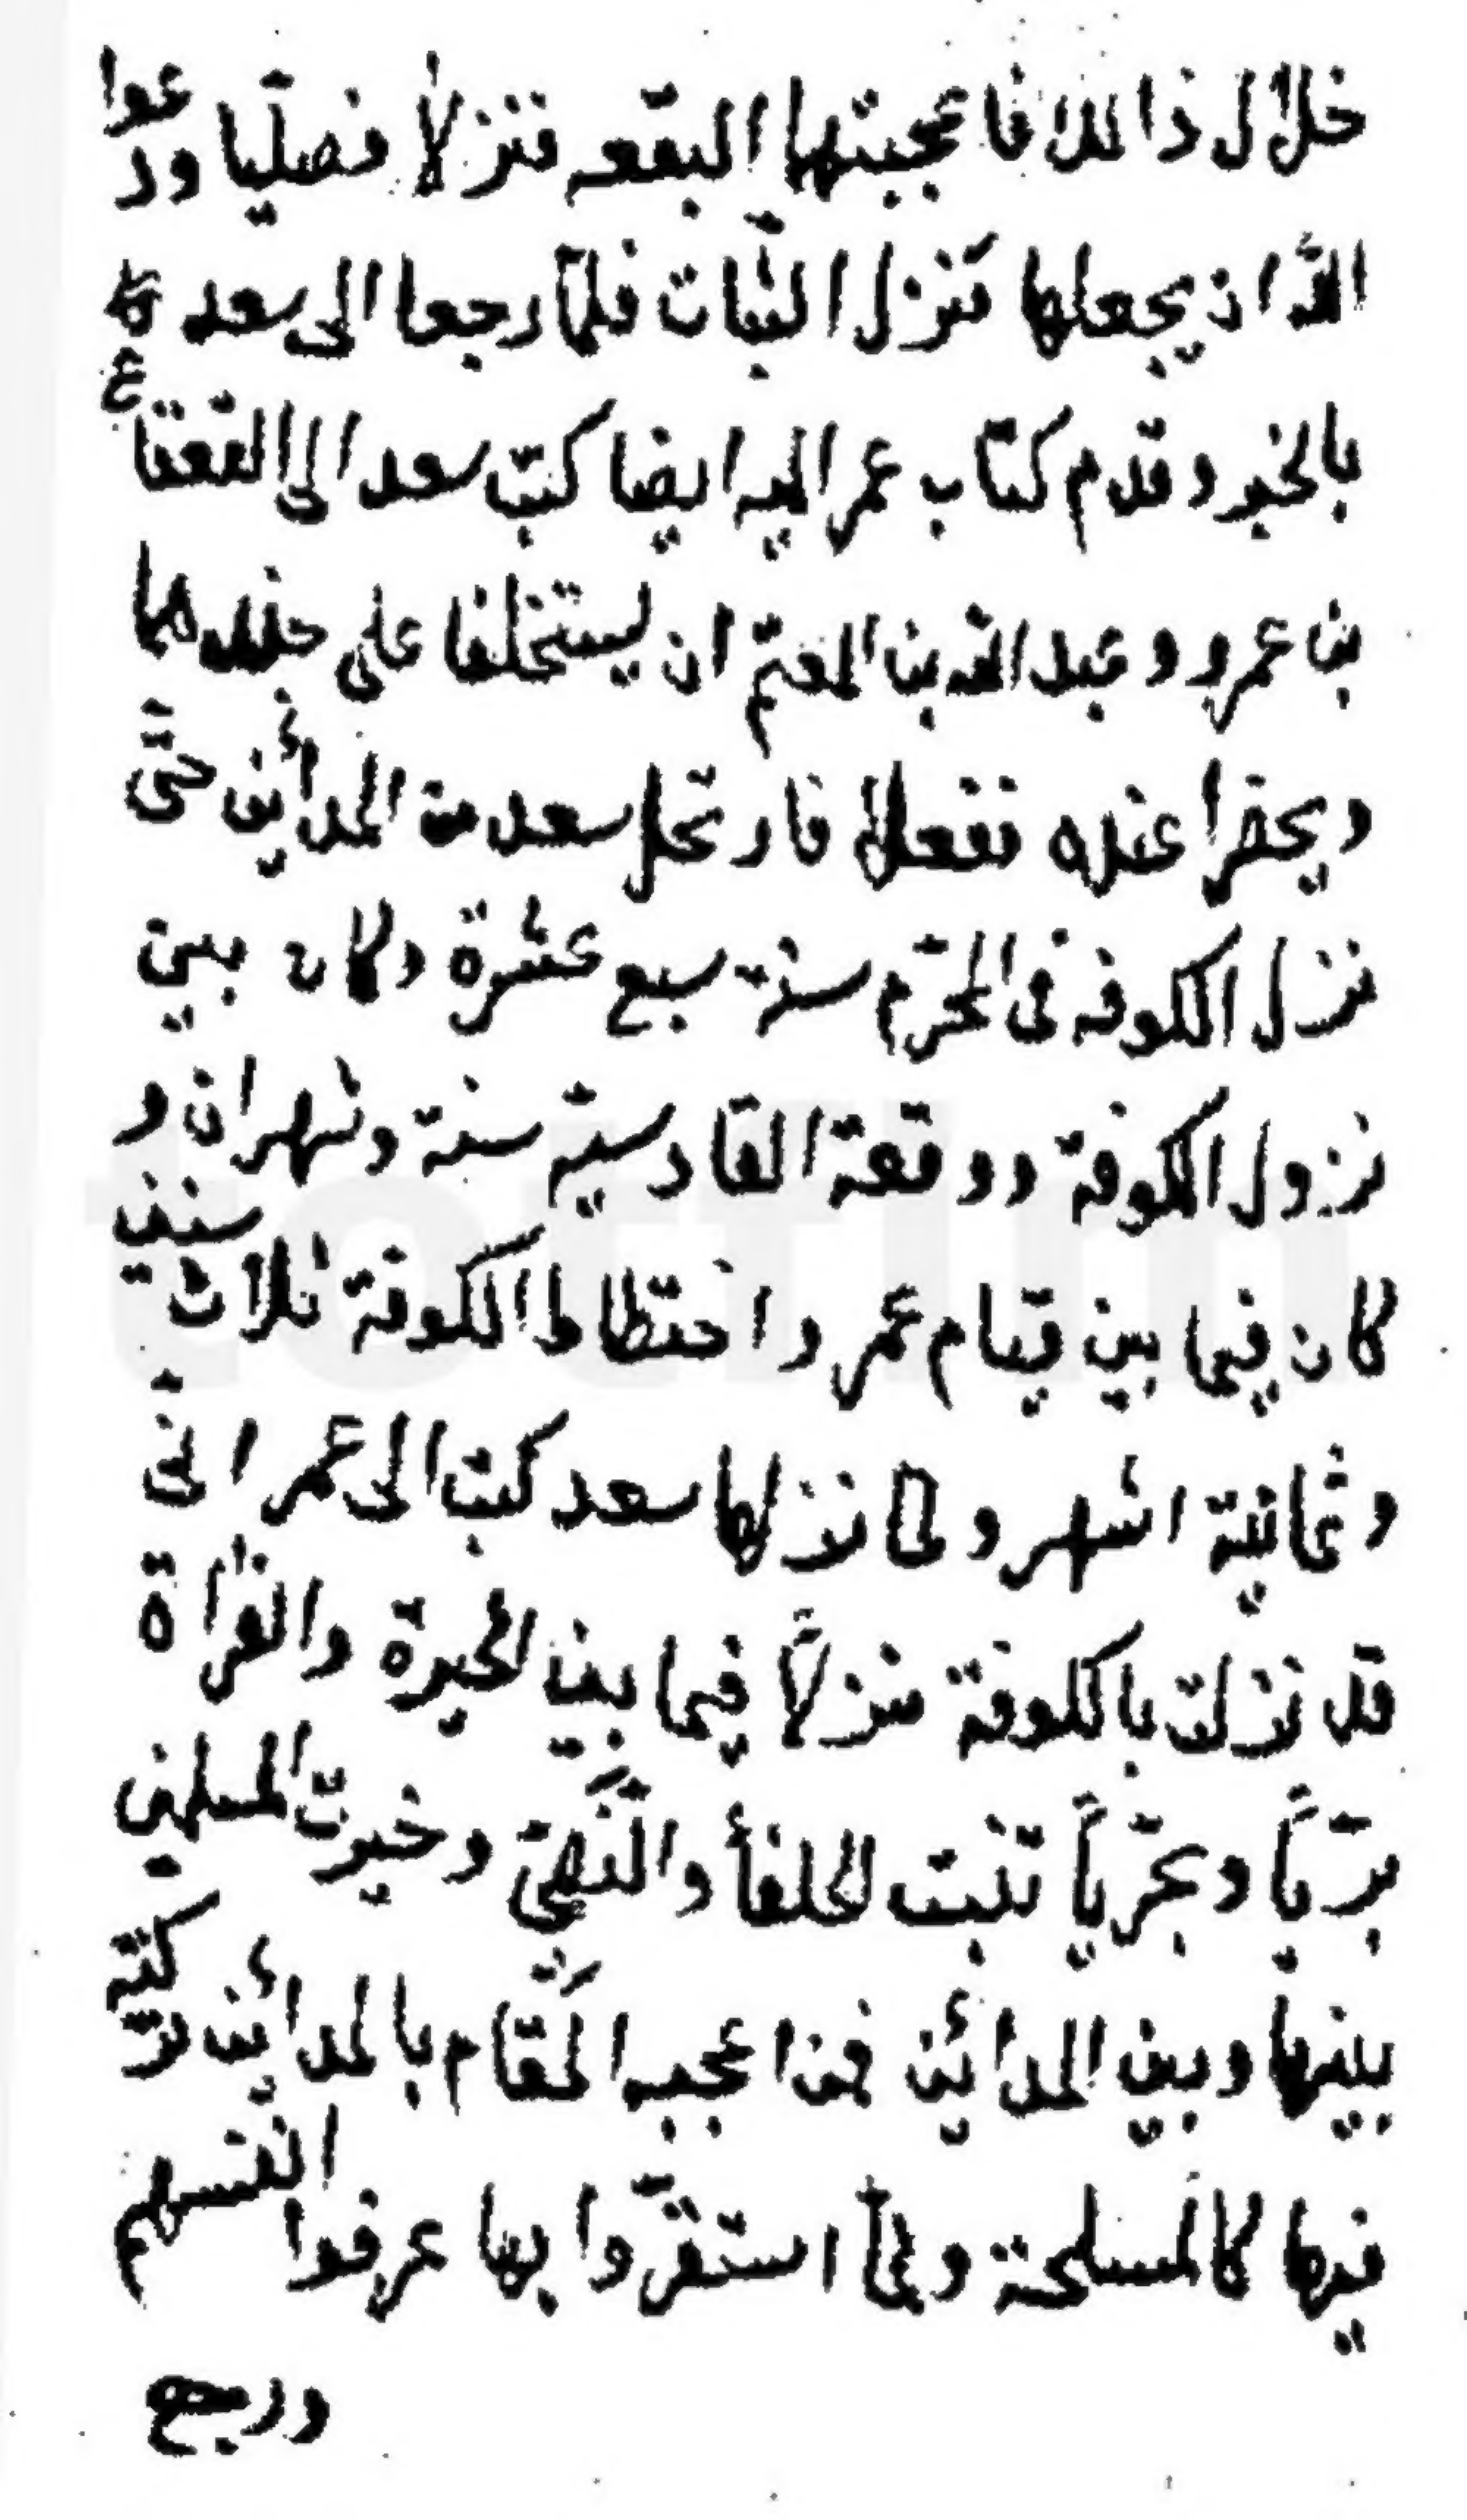 خلال ذالك فاعجبتها البقعه فنزلا فصليا ودعوا
الله ان يجعلها منزل الثبات فلما رجعا الى سعد
بالخبر وقدم كتاب عمر اليه ايضا كتب سعد الى القعقاع
بن عمرو وعبد الله بن المعتم ان يستخلفا على جندهما
ويحضرا عنده ففعلا فارتحل سعد من المدائين حتى
نزل الكوفه فى المحرم سنة سبع عشرة وكان بين
نزول الكوفة ووقعة القادسية سنة وشهران و
كان فيما بين قيام عمر واختطاط الكوفة ثلاث سنين
وثمانية اشهر ولما نزلها سعد كتب الى عمر انى
قد نزلت بالكوفة منزلاً فيما بين الحيرة والفراة
برّياً وبحّرياً تنبت الحلفأ والنصىّ وخيرت المسلمين
بينها وبين المدائين فمن اعجبه المقام بالمدائين تركته
فيها كالمسلحة ولما استقرّوا بها عرفوا انفسهم
ورجع